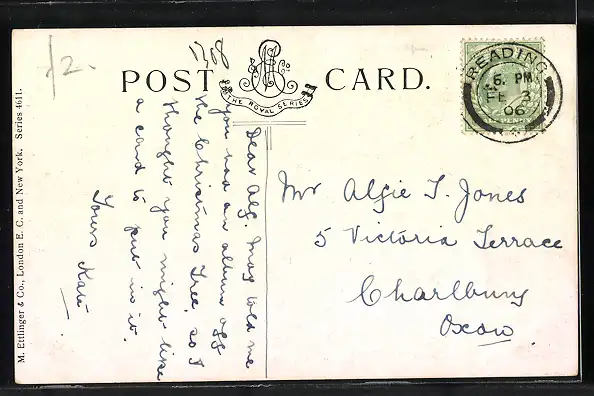 12.
1758
POST CARD.
THE ROYAL SERIES
READING
6. PM
FE 3
06
Dear Alg. May told me
you had an album off
the Christmas Tree, so I
thought you might like
a card to put in it.
Yours Kate
Mr Algie T. Jones
5 Victoria Terrace
Charlbury
Oxon
M. Ettlinger & Co., London E. C. and New York. Series 4611.